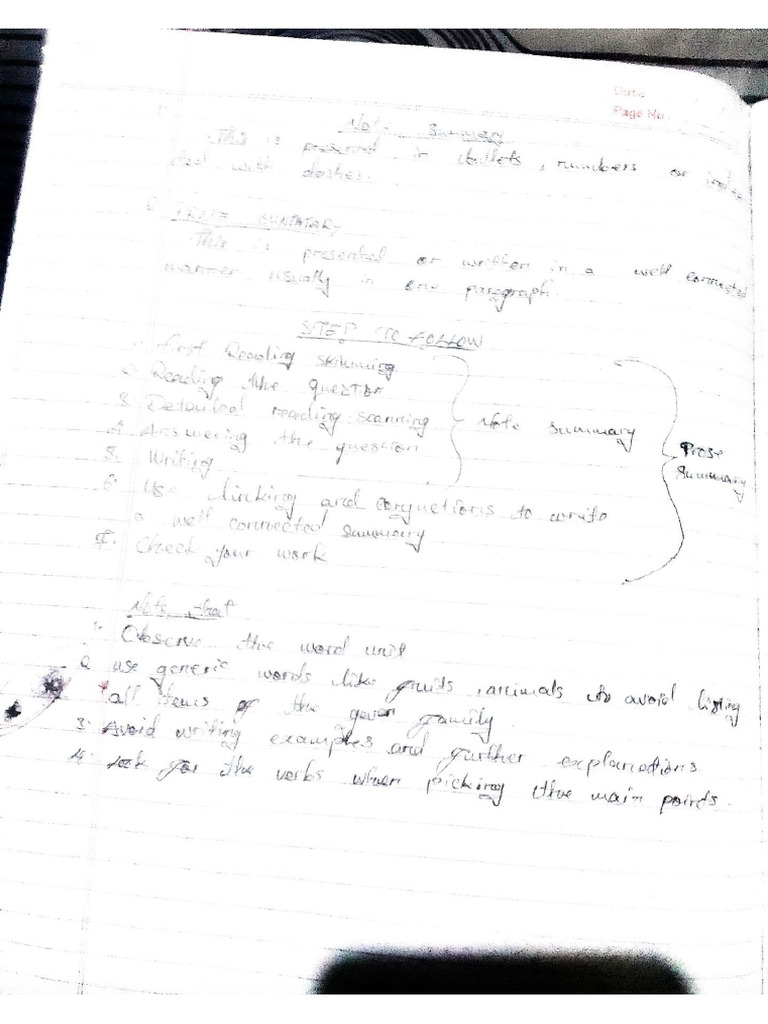 Date
Page No.
Note Summary
This is presented in bullets, numbers or
with dashes.
PROSE SUMMARY
This is presented or written in a well connected
manner usually in one paragraph.
STEP TO FOLLOW
1. First Reading skimming
2. Reading the question
3. Detailed reading scanning
4. Answering the question
5. Writing
Note summary
Prose
Summary
6. Use linking and conjuctions to write
a well connected summary
7. Check your work
Note that
1. Observe the word
2. use generic words like fruits, animals to avoid listing
all items of the given family
3. Avoid writing examples and further explanations.
4. Look for the verbs when picking the main points.